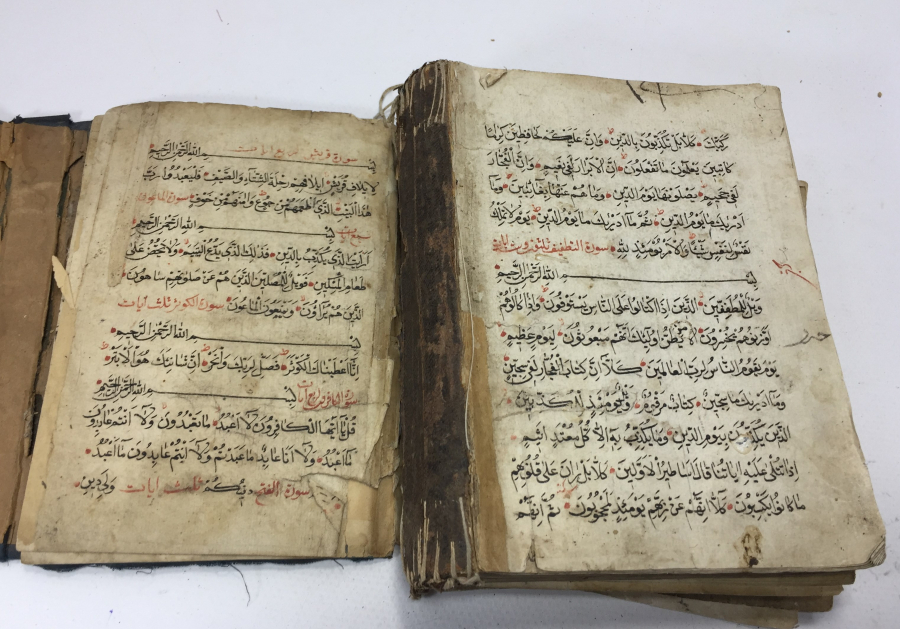 ركبك كلا بل تكذبون بالدين وان عليكم لحافظين كراما
كاتبين يعلمون ما تفعلون ان الابرار لفي نعيم وان الفجار
لفي جحيم يصلونها يوم الدين وما هم عنها بغائبين وما
ادريك ما يوم الدين ثم ما ادريك ما يوم الدين يوم لا تملك
نفس لنفس شيئا والامر يومئذ لله سورة التطفيف
بسم الله الرحمن الرحيم
ويل للمطففين الذين اذا اكتالوا على الناس يستوفون واذا كالوهم
او وزنوهم يخسرون الا يظن اولئك انهم مبعوثون ليوم عظيم
يوم يقوم الناس لرب العالمين كلا ان كتاب الفجار لفي سجين
وما ادريك ما سجين كتاب مرقوم ويل يومئذ للمكذبين
الذين يكذبون بيوم الدين وما يكذب به الا كل معتد اثيم
اذا تتلى عليه اياتنا قال اساطير الاولين كلا بل ران على قلوبهم
ما كانوا يكسبون كلا انهم عن ربهم يومئذ لمحجوبون ثم انهم
سورة قريش
بسم الله الرحمن الرحيم
لايلاف قريش ايلافهم رحلة الشتاء والصيف فليعبدوا رب
هذا البيت الذي اطعمهم من جوع وامنهم من خوف سورة الماعون
بسم الله الرحمن الرحيم
ارايت الذي يكذب بالدين فذلك الذي يدع اليتيم ولا يحض على
طعام المسكين فويل للمصلين الذين هم عن صلوتهم ساهون
الذين هم يراؤن ويمنعون الماعون سورة الكوثر ثلث ايات
بسم الله الرحمن الرحيم
انا اعطيناك الكوثر فصل لربك وانحر ان شانئك هو الابتر
سورة الكافرون
بسم الله الرحمن الرحيم
قل يا ايها الكافرون لا اعبد ما تعبدون ولا انتم عابدون
ما اعبد ولا انا عابد ما عبدتم ولا انتم عابدون ما اعبد
لكم دينكم ولي دين سورة الفتح ثلث ايات